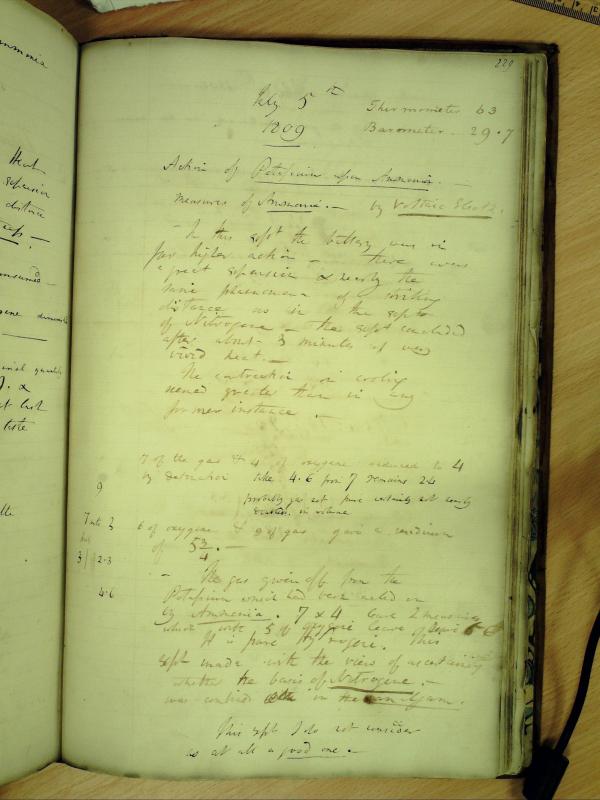 229
July 5th
1809
Thermometer 63
Barometer - 29.7
Action of Potassium upon Ammonia. -
measures of Ammonia. - by Voltaic Elect.
- In this expt the battery was in
far higher action - there was
a great expansion & nearly the
same phenomena of striking
distance as in the expts
of Nitrogene - the expt concluded
after about 3 minutes of very
vivid heat. -
The contraction on cooling
seemed greater than in any
former instance. -
7 of the gas & 4 of oxygene reduced to 4
by detonation take 4.6 from 7 remains 2.4
probably gas not pure certainly not
in volume
9
7 into 3
3 | 2.3
4.6
6 of oxygene & 9 of gas gave a residuum
of 5 3/4. -
- The gas given off from the
Potassium which had been acted on
by Ammonia. 7 & 4 leave 2 measures
which with 5 of oxygene leave
It is pure Hydrogene. This
expt made with the view of ascertaining
whether the basis of Nitrogene. -
was in the amalgam.
This expt I do not consider
as at all a good one. -
Heat
expansion
distance
consumed -
&
at last